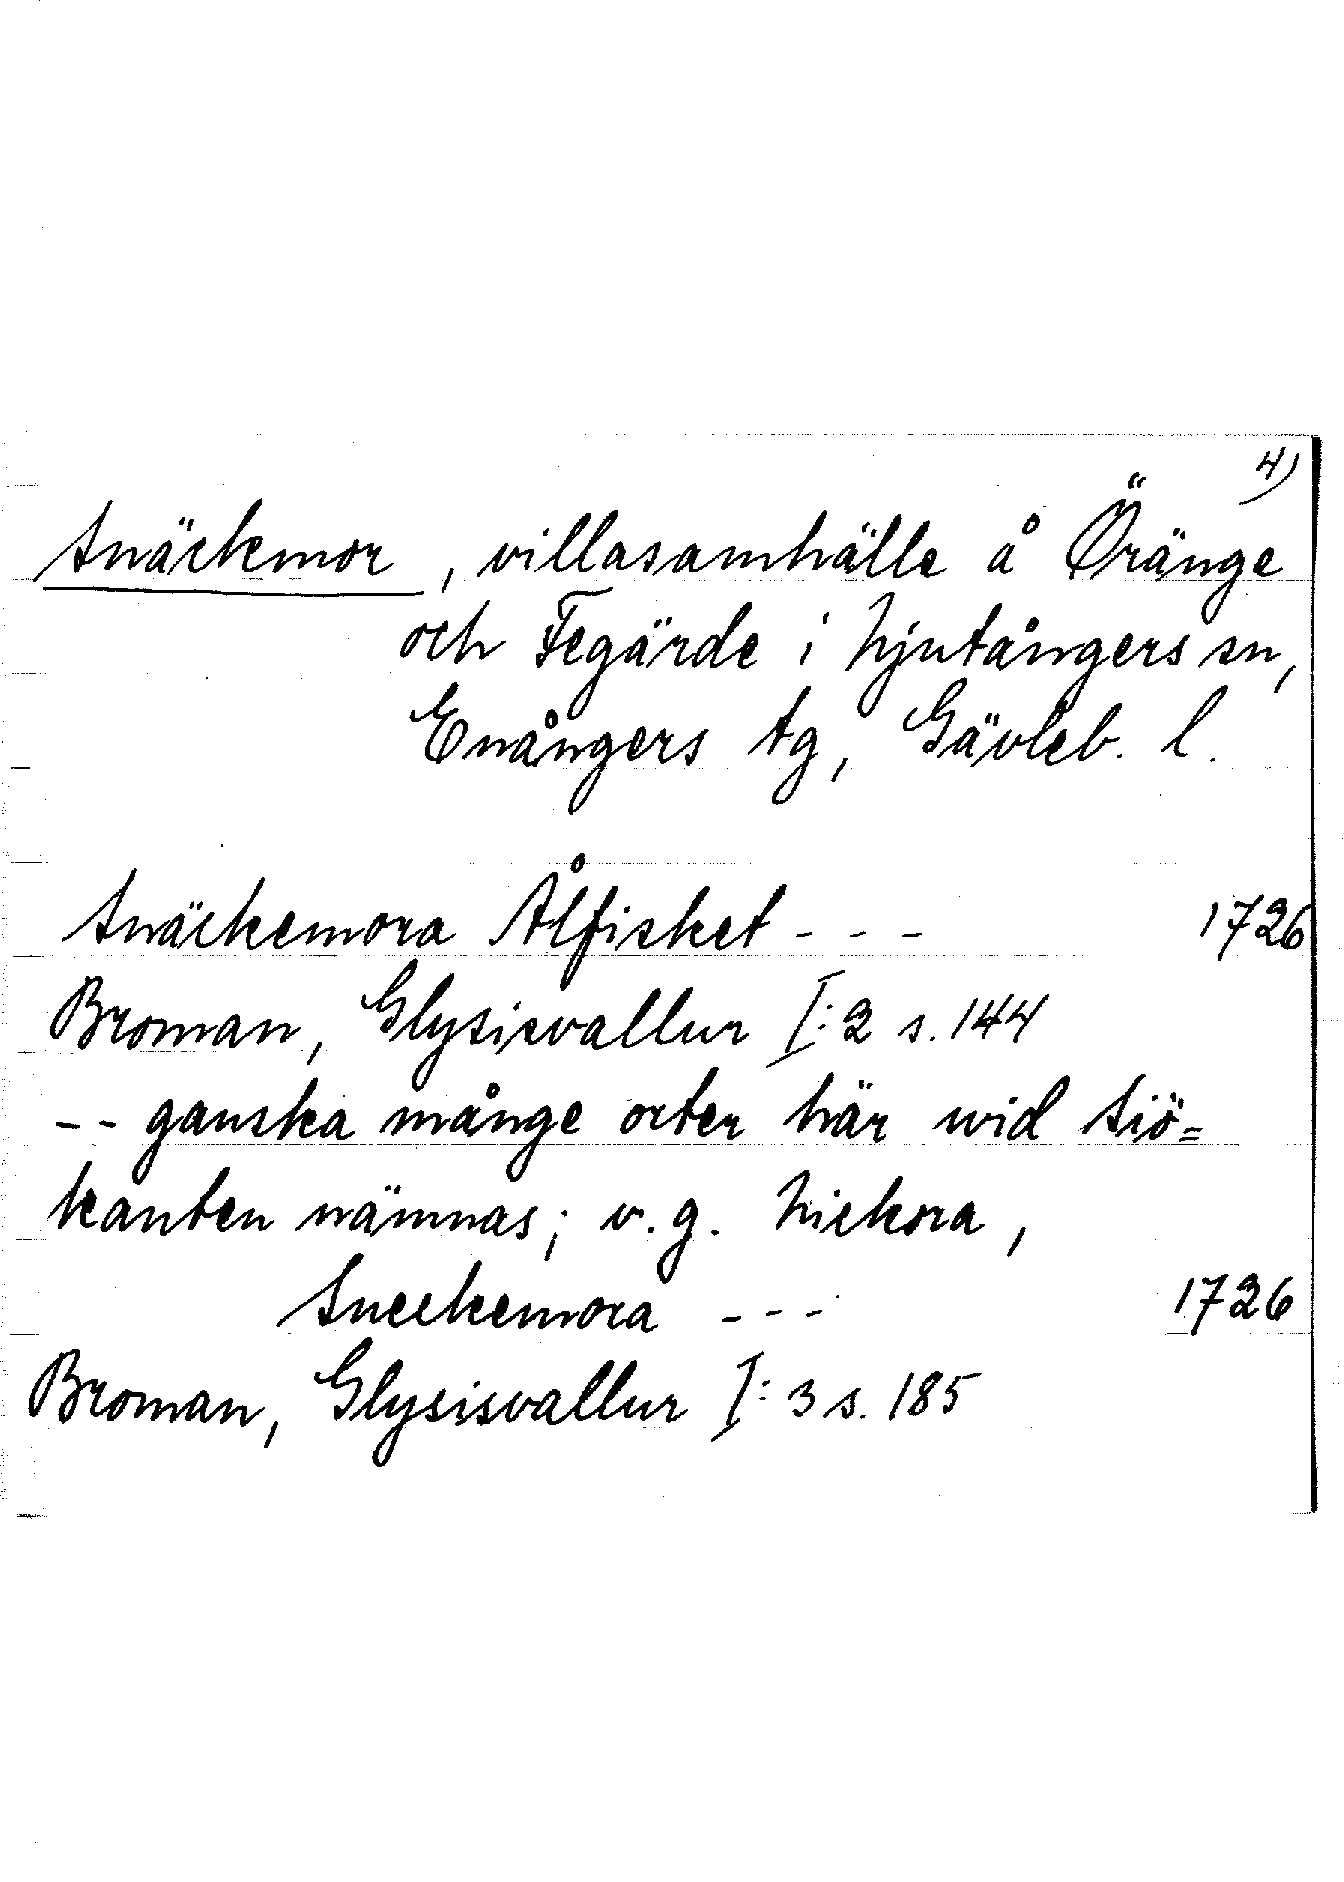 4)
Snäckmor, villasamhälle å Öränge
och Tegärde i Njutångers sn,
Enångers tg, Gävleb. l.
Snäckemora Ålfisket - - - 1726
Broman, Glysisvallur I:2 s. 144
-- ganska månge orter här wid siö=
kanten nämnas; v.g. Nickora,
Sneckemora - - - 1726
Broman, Glysisvallur I:3 s. 185